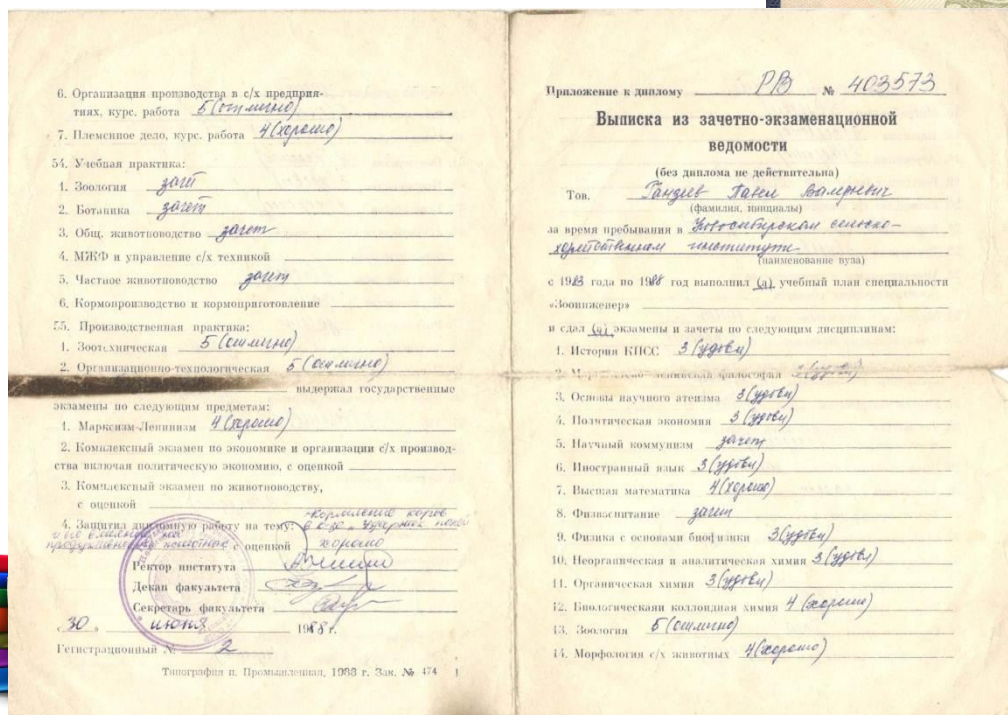 6. Организация производства в с/х предприя-
тиях, курс. работа 5 (отлично)
7. Племенное дело, курс. работа 4 (хорошо)
54. Учебная практика:
1. Зоология зачет
2. Ботаника зачет
3. Общ. животноводство зачет
4. МЖФ и управление с/х техникой
5. Частное животноводство зачет
6. Кормопроизводство и кормоприготовление
55. Производственная практика:
1. Зоотехническая 5 (отлично)
2. Организационно-технологическая 5 (отлично)
выдержал государственные
экзамены по следующим предметам:
1. Марксизм-Ленинизм 4 (хорошо)
2. Комплексный экзамен по экономике и организации с/х производ-
ства включая политическую экономию, с оценкой
3. Комплексный экзамен по животноводству,
с оценкой
4. Защитил дипломную работу на тему: кормление коров
в к-зе "Ударник полей
и его влияние на
продуктивность животных с оценкой хорошо
Ректор института
Декан факультета
Секретарь факультета
„30„ июня 1988 г.
Регистрационный № 2
Типография п. Промышленная, 1988 г. Зак. № 474
Приложение к диплому РВ № 403573
Выписка из зачетно-экзаменационной
ведомости
(без диплома не действительна)
Тов. Павел
(фамилия, инициалы)
за время пребывания в Новосибирском сельско-
хозяйственном институте
(наименование вуза)
с 1983 года по 1988 год выполнил (а) учебный план специальности
«Зооинженер»
и сдал (а) экзамены и зачеты по следующим дисциплинам:
1. История КПСС 3 (удовл)
2. Марксистско-ленинская философия 3 (удовл)
3. Основы научного атеизма 3 (удовл)
4. Политическая экономия 3 (удовл)
5. Научный коммунизм зачет
6. Иностранный язык 3 (удовл)
7. Высшая математика 4 (хорошо)
8. Физвоспитание зачет
9. Физика с основами биофизики 3 (удовл)
10. Неорганическая и аналитическая химия 3 (удовл)
11. Органическая химия 3 (удовл)
12. Биологическая коллоидная химия 4 (хорошо)
13. Зоология 5 (отлично)
14. Морфология с/х животных 4 (хорошо)